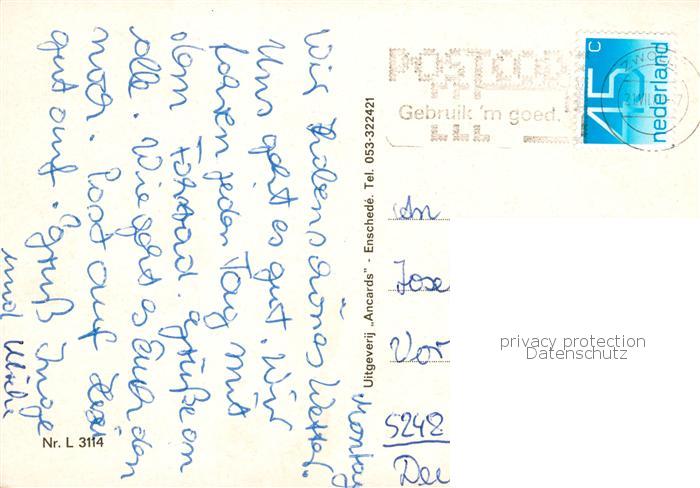 Montag
Wir haben schönes Wetter.
Uns geht es gut. Wir
fahren jeden Tag mit
dem Fahrrad. Grüße an
alle. Wie geht es Euch den
noch. Passt auf
gut auf. Gruß Inge
und
Nr. L 3114
Uitgeverij „Ancards" - Enschedé. Tel. 053-322421
POSTCODE
Gebruik 'm goed.
ZWO
45 c
nederland
An
Jose
Vor
5248
Deu
privacy protection
Datenschutz